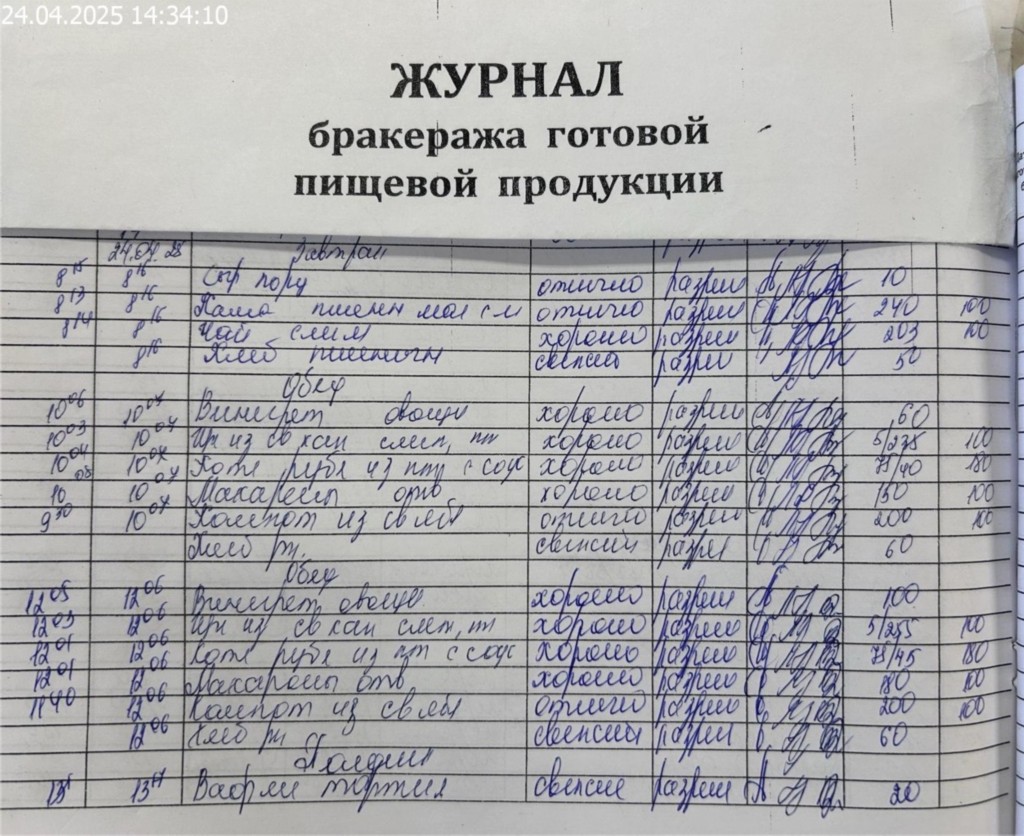 24.04.2025 14:34:10
ЖУРНАЛ
бракеража готовой
пищевой продукции
24.04.25 Завтрак
8 15 8 16 Сыр порц отлично разреш 10
8 13 8 16 Каша пшенн мол с м отлично разреш 240 100
8 14 8 16 Чай слим хорошо разреш 203 100
8 16 Хлеб пшеничн свежий разреш 50
Обед
10 06 10 07 Винигрет овощн хорошо разреш 60
10 03 10 07 Щи из св кап смет, пт хорошо разреш 5/235 100
10 04 10 07 Котл рубл из пт с соус хорошо разреш 75/40 180
10 05 10 07 Макароны отв хорошо разреш 150 100
9 30 10 07 Компот из св ябл отлично разреш 200 100
Хлеб рж. свежий разреш 60
Обед
12 05 12 06 Винигрет овощн хорошо разреш 100
12 03 12 06 Щи из св кап смет, пт хорошо разреш 5/255 100
12 01 12 06 Котл рубл из пт с соус хорошо разреш 75/45 180
12 01 12 06 Макароны отв хорошо разреш 180 100
11 40 12 06 Компот из св ябл отлично разреш 200 100
12 06 Хлеб рж свежий разреш 60
Полдник
Вафли свежие разреш 20